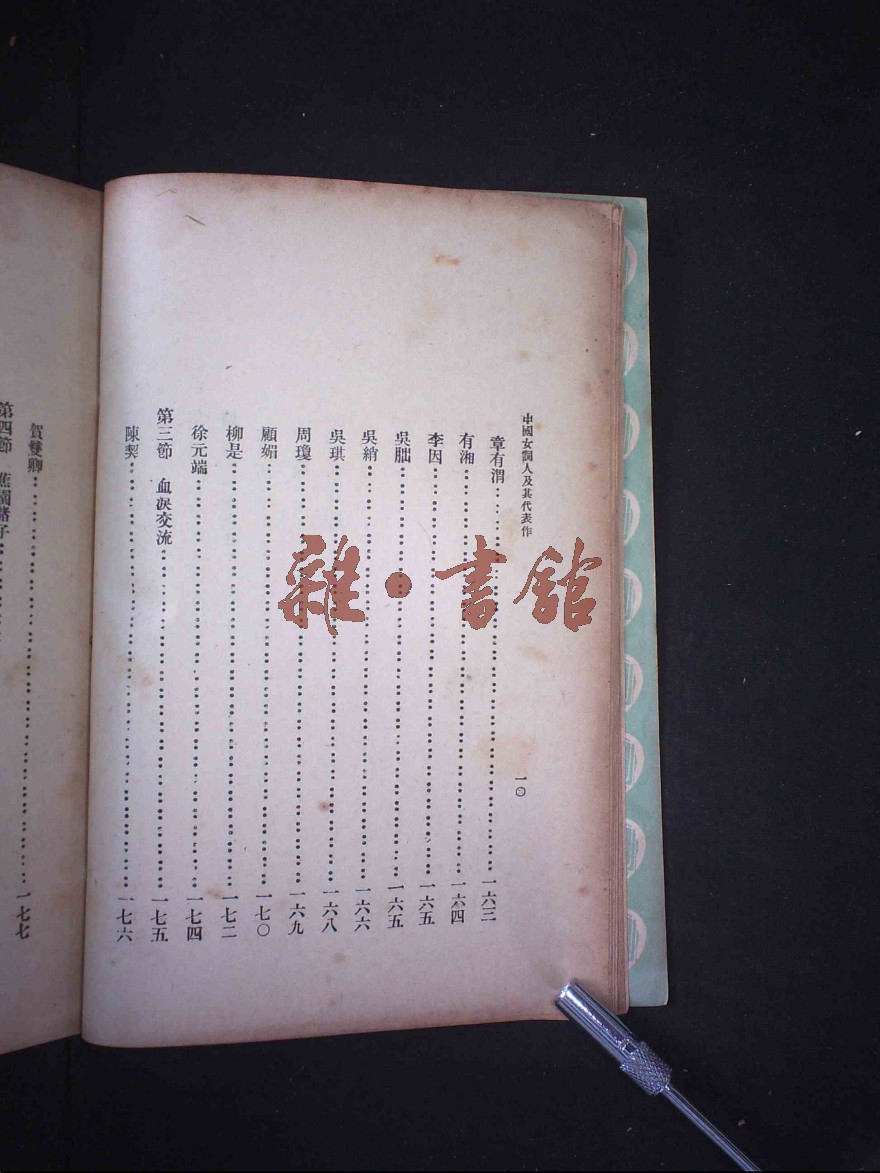 中國女詞人及其代表作
一〇
章有渭 一六三
有湘 一六四
李因 一六五
吳朏 一六五
吳綃 一六六
吳琪 一六八
周瓊 一六九
顧媚 一七〇
柳是 一七二
徐元端 一七四
第三節 血淚交流 一七五
陳契 一七六
賀雙卿 一七七
第四節 蕉園諸子
雜·書館